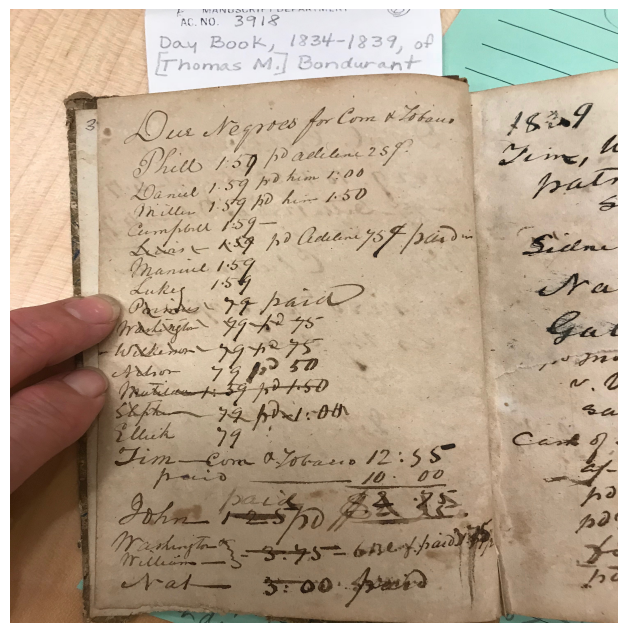 MANUSCRIPT DEPARTMENT
AC. NO. 3918
Day Book, 1834-1839, of
[Thomas M.] Bondurant
3
Due Negroes for Corn & Tobacco
Phill 1:59 pd Adeline 25¢
Daniel 1.59 pd him 1:00
Miller 1.59 pd him 1:50
Campbell 1.59
Lewis 1.59 pd Adeline 75¢ paid
Manuel 1.59
Lukey 1.59
79 paid
Washington 79 pd 75
Wilkerson 79 pd 75
Nelson 79 pd 50
Matilda 1:59 pd 1.50
Stephen 79 pd 1:00
Ellick 79
Tim Corn & Tobacco 12:55
paid 10.00
paid
John 1 25 pd
Washington &
William 3.75 paid
Nat 3:00 paid
1839
Tim,
Sidne
Na
Ga
v.
Cash of
pd
pd